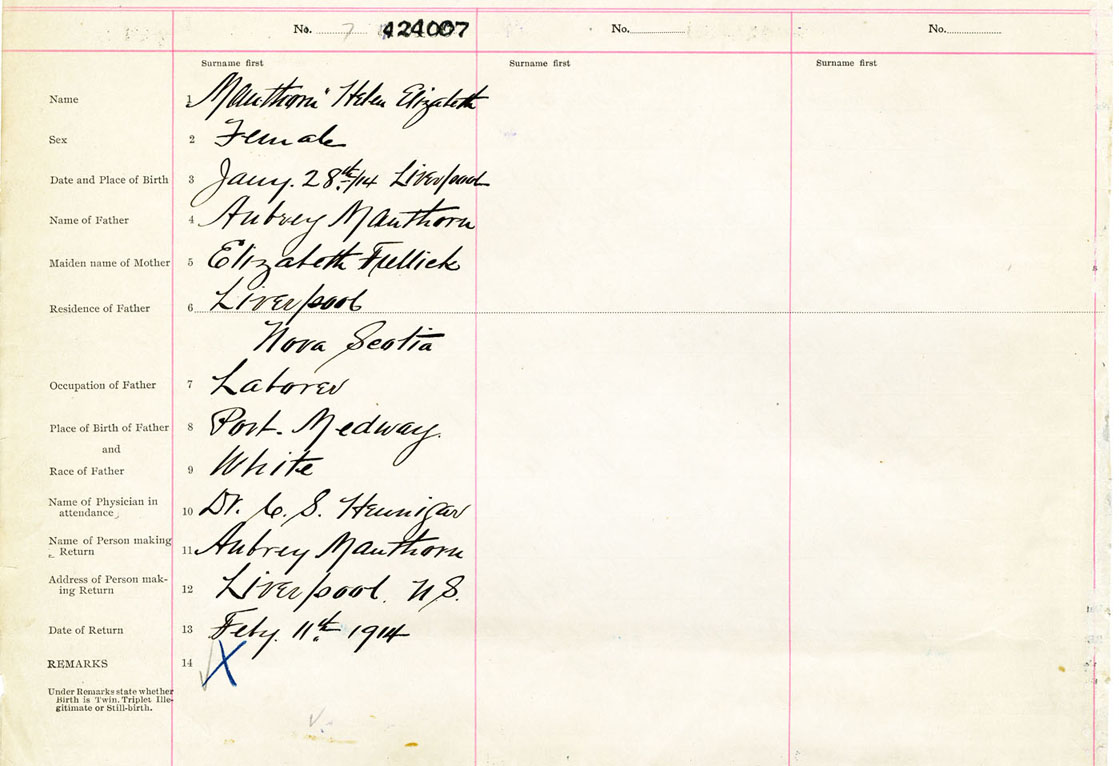 No. 7 424007 No. No.
Surname first Surname first Surname first
Name 1 Manthorn Helen Elizabeth
Sex 2 Female
Date and Place of Birth 3 Jany. 28th/14 Liverpool
Name of Father 4 Aubrey Manthorn
Maiden name of Mother 5 Elizabeth Fullick
Residence of Father 6 Liverpool
Nova Scotia
Occupation of Father 7 Laborer
Place of Birth of Father 8 Port. Medway.
and
Race of Father 9 White
Name of Physician in
attendance 10 Dr. C. S. Hennigar
Name of Person making
Return 11 Aubrey Manthorn
Address of Person mak-
ing Return 12 Liverpool. N.S.
Date of Return 13 Feby. 11th 1914
REMARKS 14 X
Under Remarks state whether
Birth is Twin, Triplet Ille-
gitimate or Still-birth.